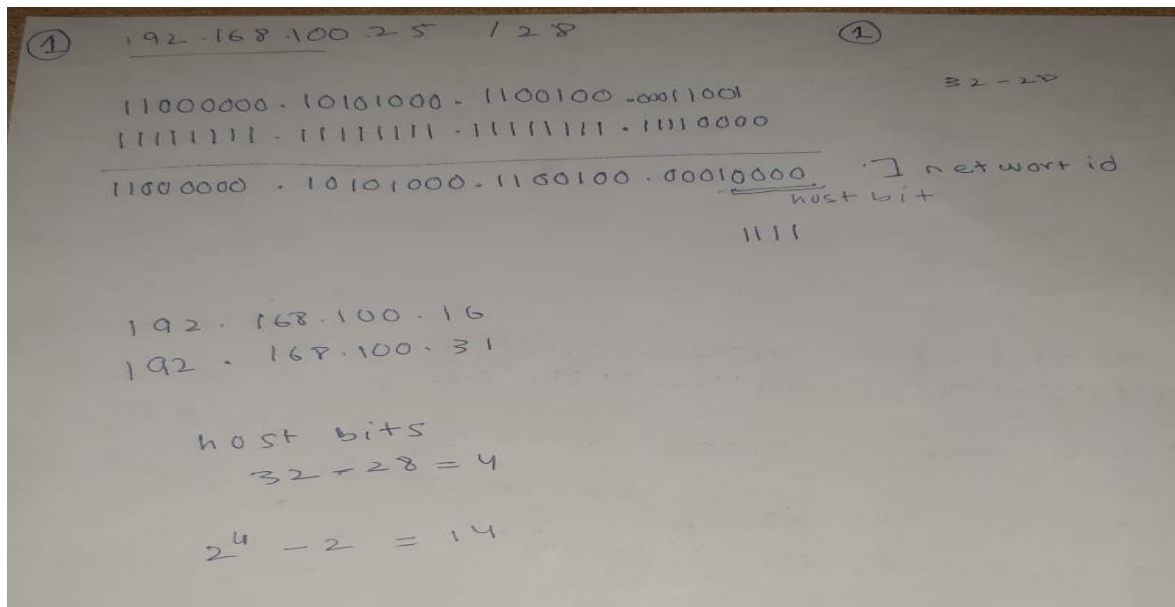 ① 192.168.100.25 /28
11000000.10101000.1100100.00011001
11111111.11111111.11111111.11110000
11000000.10101000.1100100.00010000 ] network id
host bit
1111
192.168.100.16
192.168.100.31
host bits
32-28=4
2⁴-2=14
①
32-28